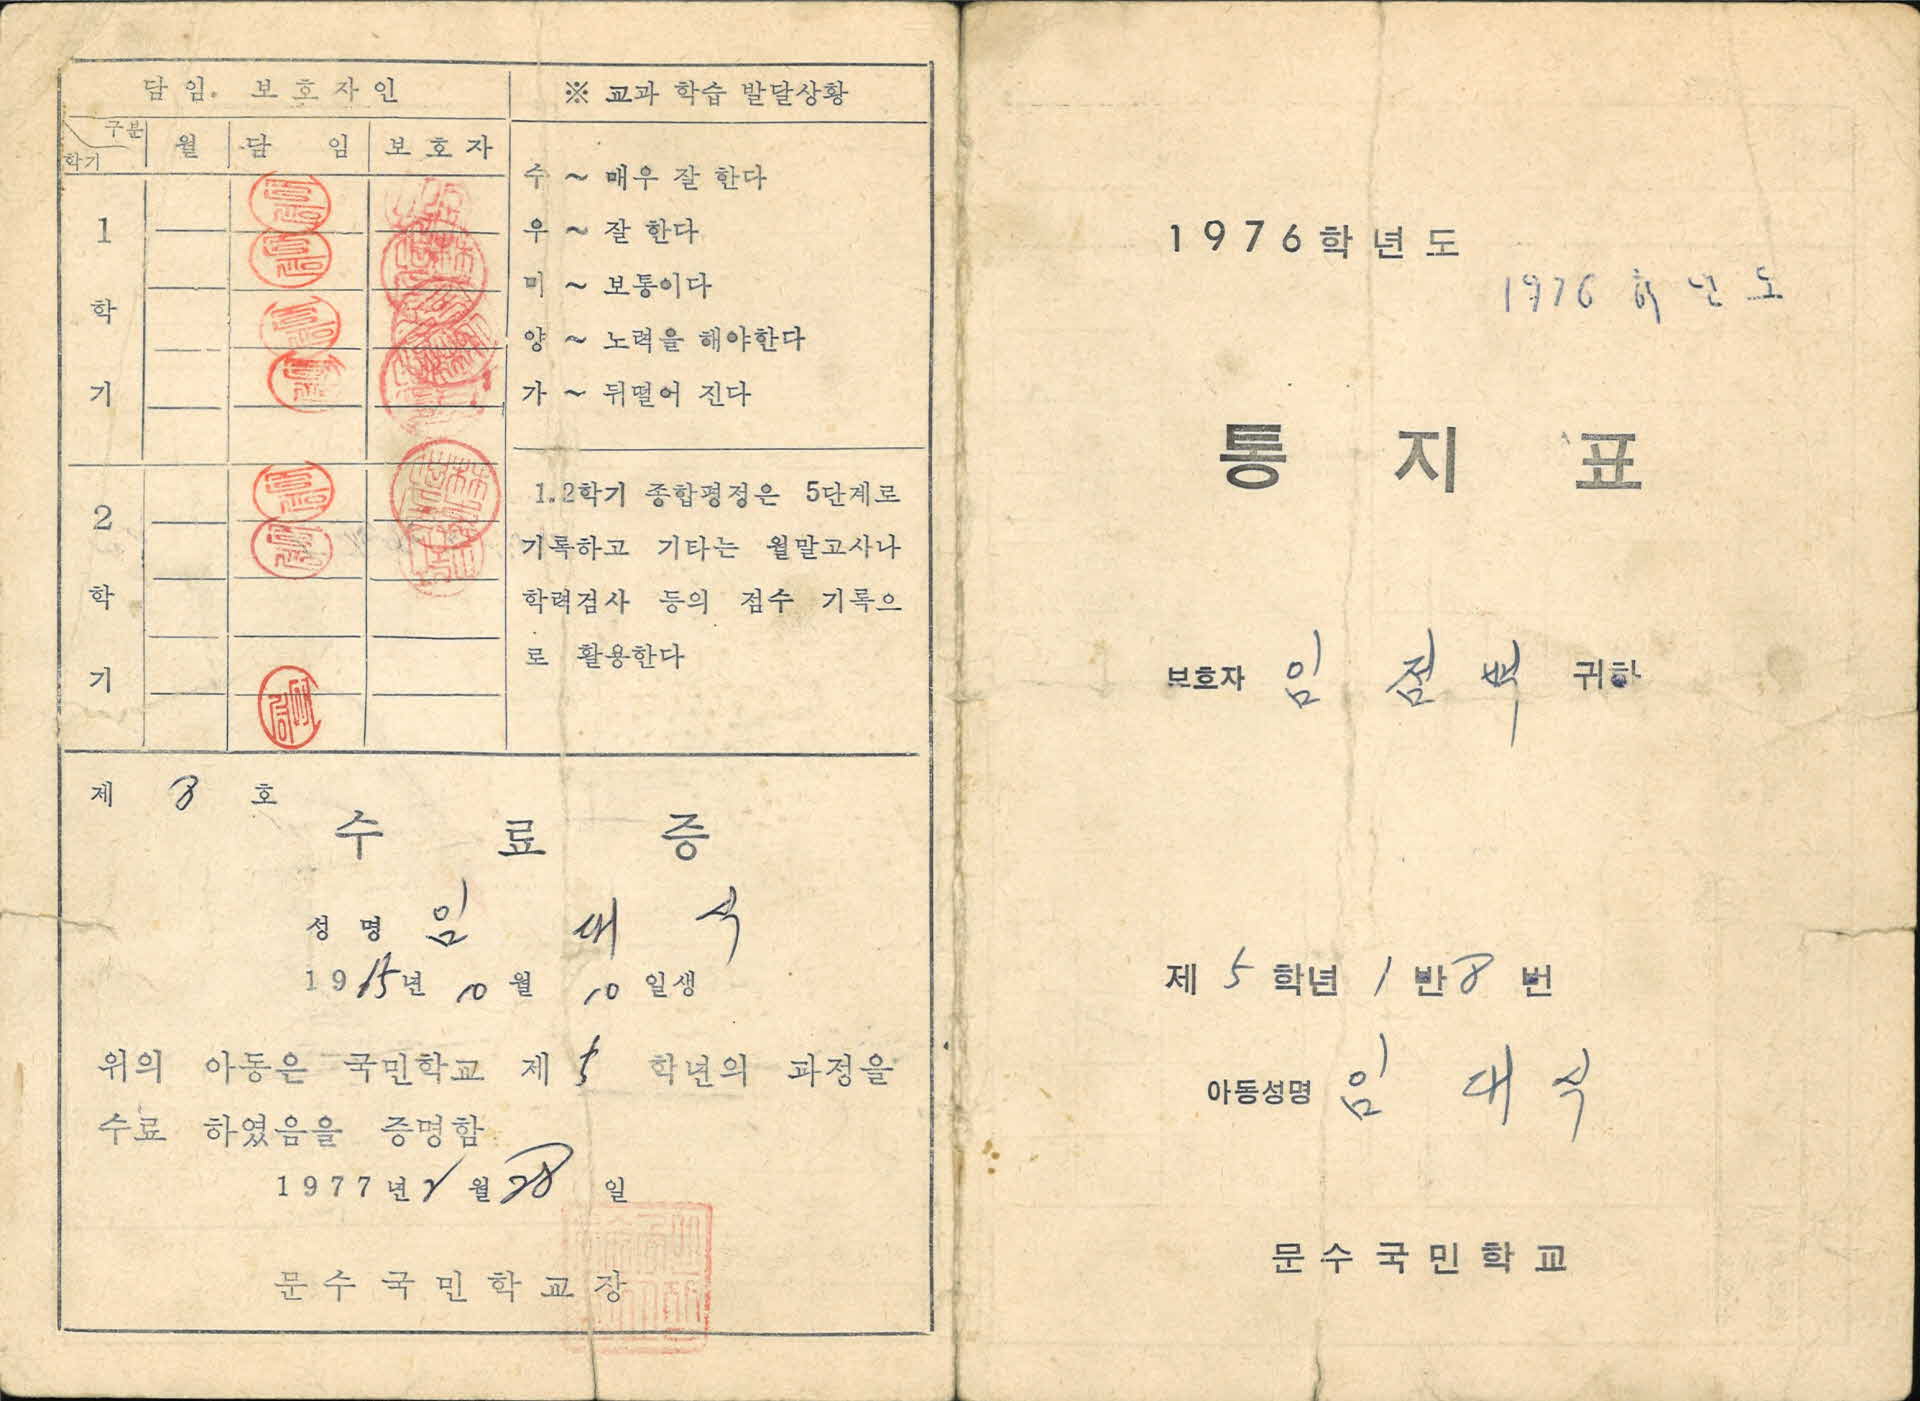 담임 보호자인
구분
학기
월 담 임 보호자
1
학
기
2
학
기
※ 교과 학습 발달상황
수 ~ 매우 잘 한다
우 ~ 잘 한다
미 ~ 보통이다
양 ~ 노력을 해야한다
가 ~ 뒤떨어 진다
1.2학기 종합평정은 5단계로
기록하고 기타는 월말고사나
학력검사 등의 점수 기록으
로 활용한다
제 8 호
수 료 증
성명 임 대 식
19 년 10 월 10 일생
위의 아동은 국민학교 제 5 학년의 과정을
수료 하였음을 증명함
1977년 2 월 28 일
문수국민학교장
1976학년도
1976 학년도
통 지 표
보호자 임 귀하
제 5 학년 1 반 8 번
아동성명 임 대 식
문수국민학교